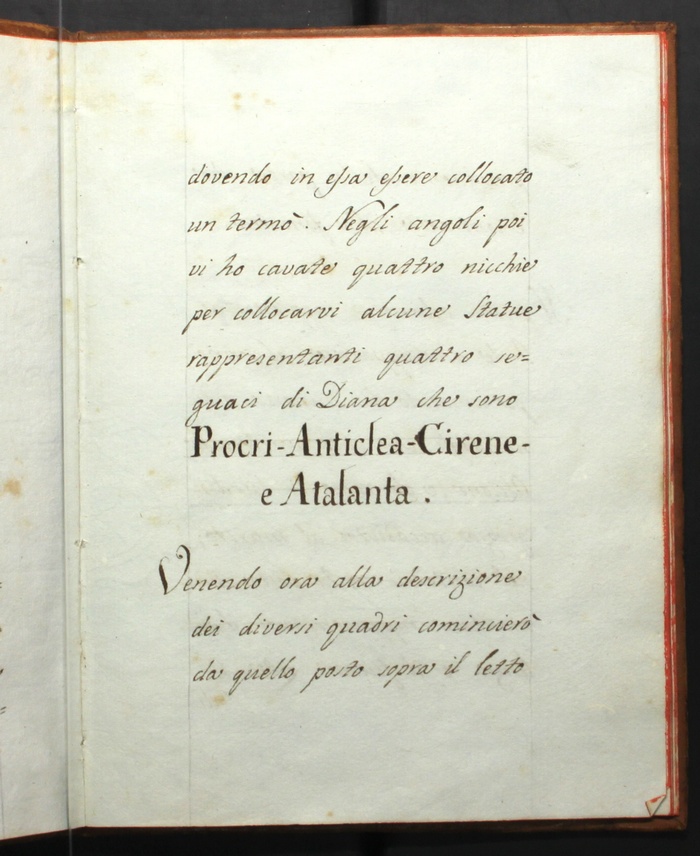 dovendo in eſsa eſsere collocato
un termo. Negli angoli poi
vi ho cavate quattro nicchie
per collocarvi alcune Statue
rappresentanti quattro se=
guaci di Diana che sono
Procri-Anticlea-Cirene-
e Atalanta.
Venendo ora alla descrizione
dei diversi quadri comincierò
da quello posto sopra il letto